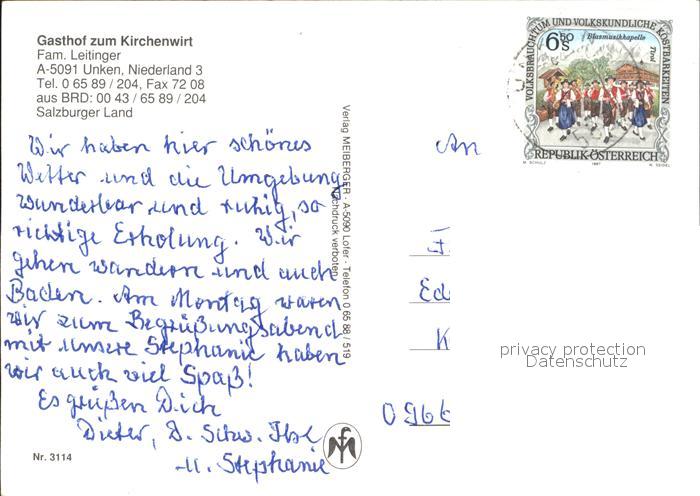 Gasthof zum Kirchenwirt
Fam. Leitinger
A-5091 Unken, Niederland 3
Tel. 0 65 89 / 204, Fax 72 08
aus BRD: 00 43 / 65 89 / 204
Salzburger Land
Wir haben hier schönes
Wetter und die Umgebung
wunderbar und ruhig, so
richtige Erholung. Wir
gehen wandern und auch
Baden. Am Montag waren
wir zum Begrüßungsabend
mit unsere Stephanie haben
wir auch viel Spaß!
Es grüßen Dich
Dieter,
u. Stephanie
Nr. 3114
Verlag MEIBERGER - A-5090 Lofer - Telefon 0 65 88 / 519
Nachdruck verboten
An
Ed
K
0966
VOLKSBRAUCHTUM UND VOLKSKUNDLICHE KOSTBARKEITEN
6,50 S
Blasmusikkapelle
Tirol
REPUBLIK ÖSTERREICH
M. SCHULZ 1997 N. SEIDEL
privacy protection
Datenschutz